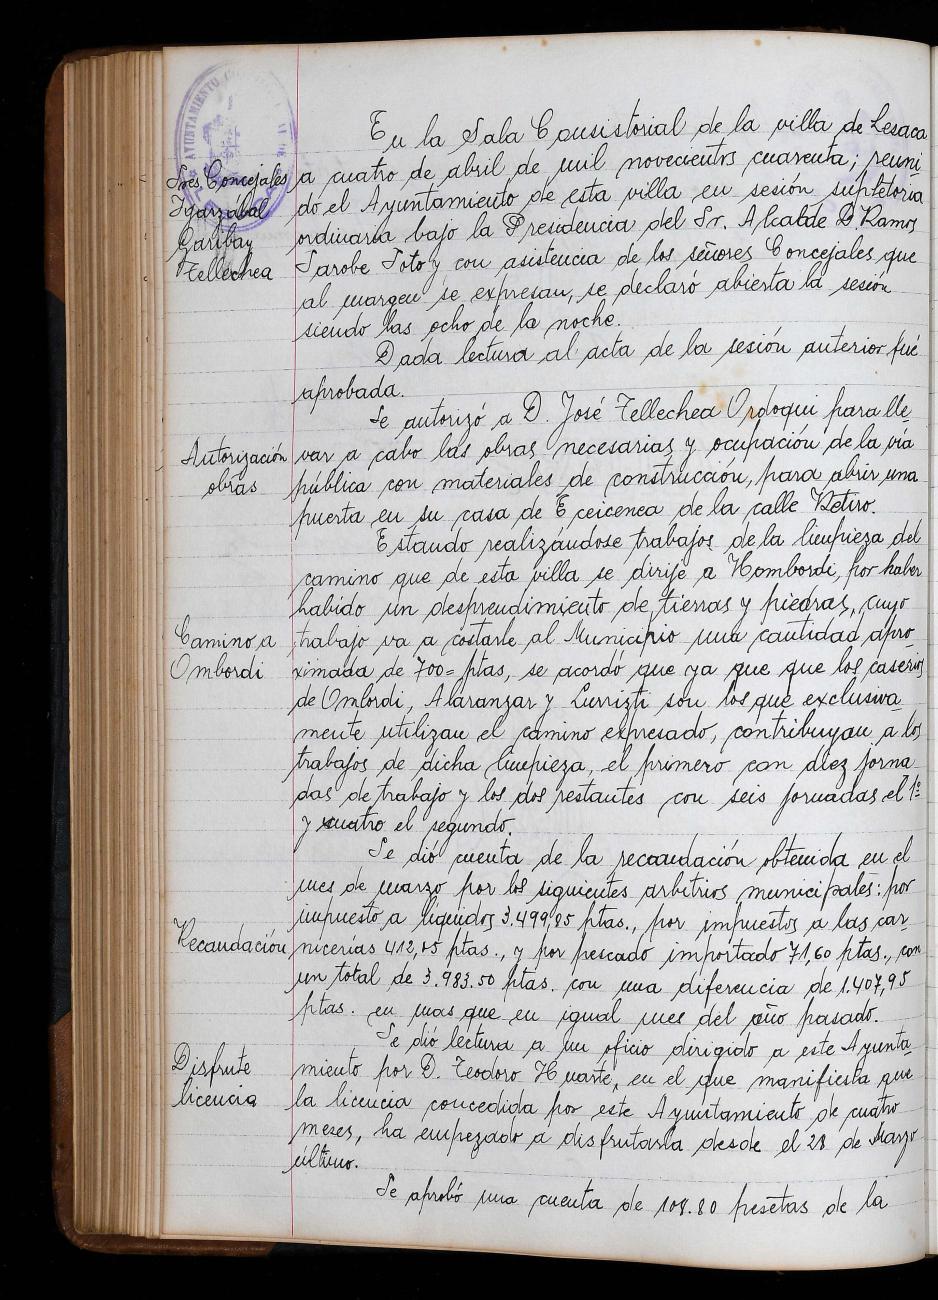 AYUNTAMIENTO
En la Sala Consistorial de la villa de Lesaca
Sres. Concejales
a cuatro de abril de mil novecientos cuarenta; reuni
Igarzábal
do el Ayuntamiento de esta villa en sesión supletoria
Garibay
ordinaria bajo la Presidencia del Sr. Alcalde D. Ramos
Tellechea
Sarobe Soto y con asistencia de los señores Concejales que
al margen se expresan, se declaró abierta la sesión
siendo las ocho de la noche.
Dada lectura al acta de la sesión anterior fué
aprobada.
Se autorizó a D. José Tellechea Ordoqui para lle
Autorización
obras
var a cabo las obras necesarias y ocupación de la vía
pública con materiales de construcción, para abrir una
puerta en su casa de Eceicenea de la calle Retiro.
Estando realizándose trabajos de la limpieza del
camino que de esta villa se dirije a Hombordi, por haber
habido un desprendimiento de tierras y piedras, cuyo
Camino a
Ombordi
trabajo va a costarle al Municipio una cantidad apro
ximada de 700= ptas, se acordó que ya que que los caserios
de Ombordi, Alaranzar y Lurrizti son los que exclusiva
mente utilizan el camino expresado, contribuyan a los
trabajos de dicha limpieza, el primero con diez jorna
das de trabajo y los dos restantes con seis jornadas el 1º
y cuatro el segundo.
Se dió cuenta de la recaudación obtenida en el
mes de marzo por los siguientes arbitrios municipales: por
impuesto a líquidos 3.499,85 ptas., por impuestos a las car
Recaudación
nicerías 412,05 ptas., y por pescado importado 71,60 ptas., con
un total de 3.983.50 ptas. con una diferencia de 1.407,95
ptas. en mas que en igual mes del año pasado.
Se dió lectura a un oficio dirigido a este Ayunta
Disfrute
licencia
miento por D. Teodoro Huarte, en el que manifiesta que
la licencia concedida por este Ayuntamiento de cuatro
meses, ha empezado a disfrutarla desde el 28 de Marzo
último.
Se aprobó una cuenta de 108.80 pesetas de la